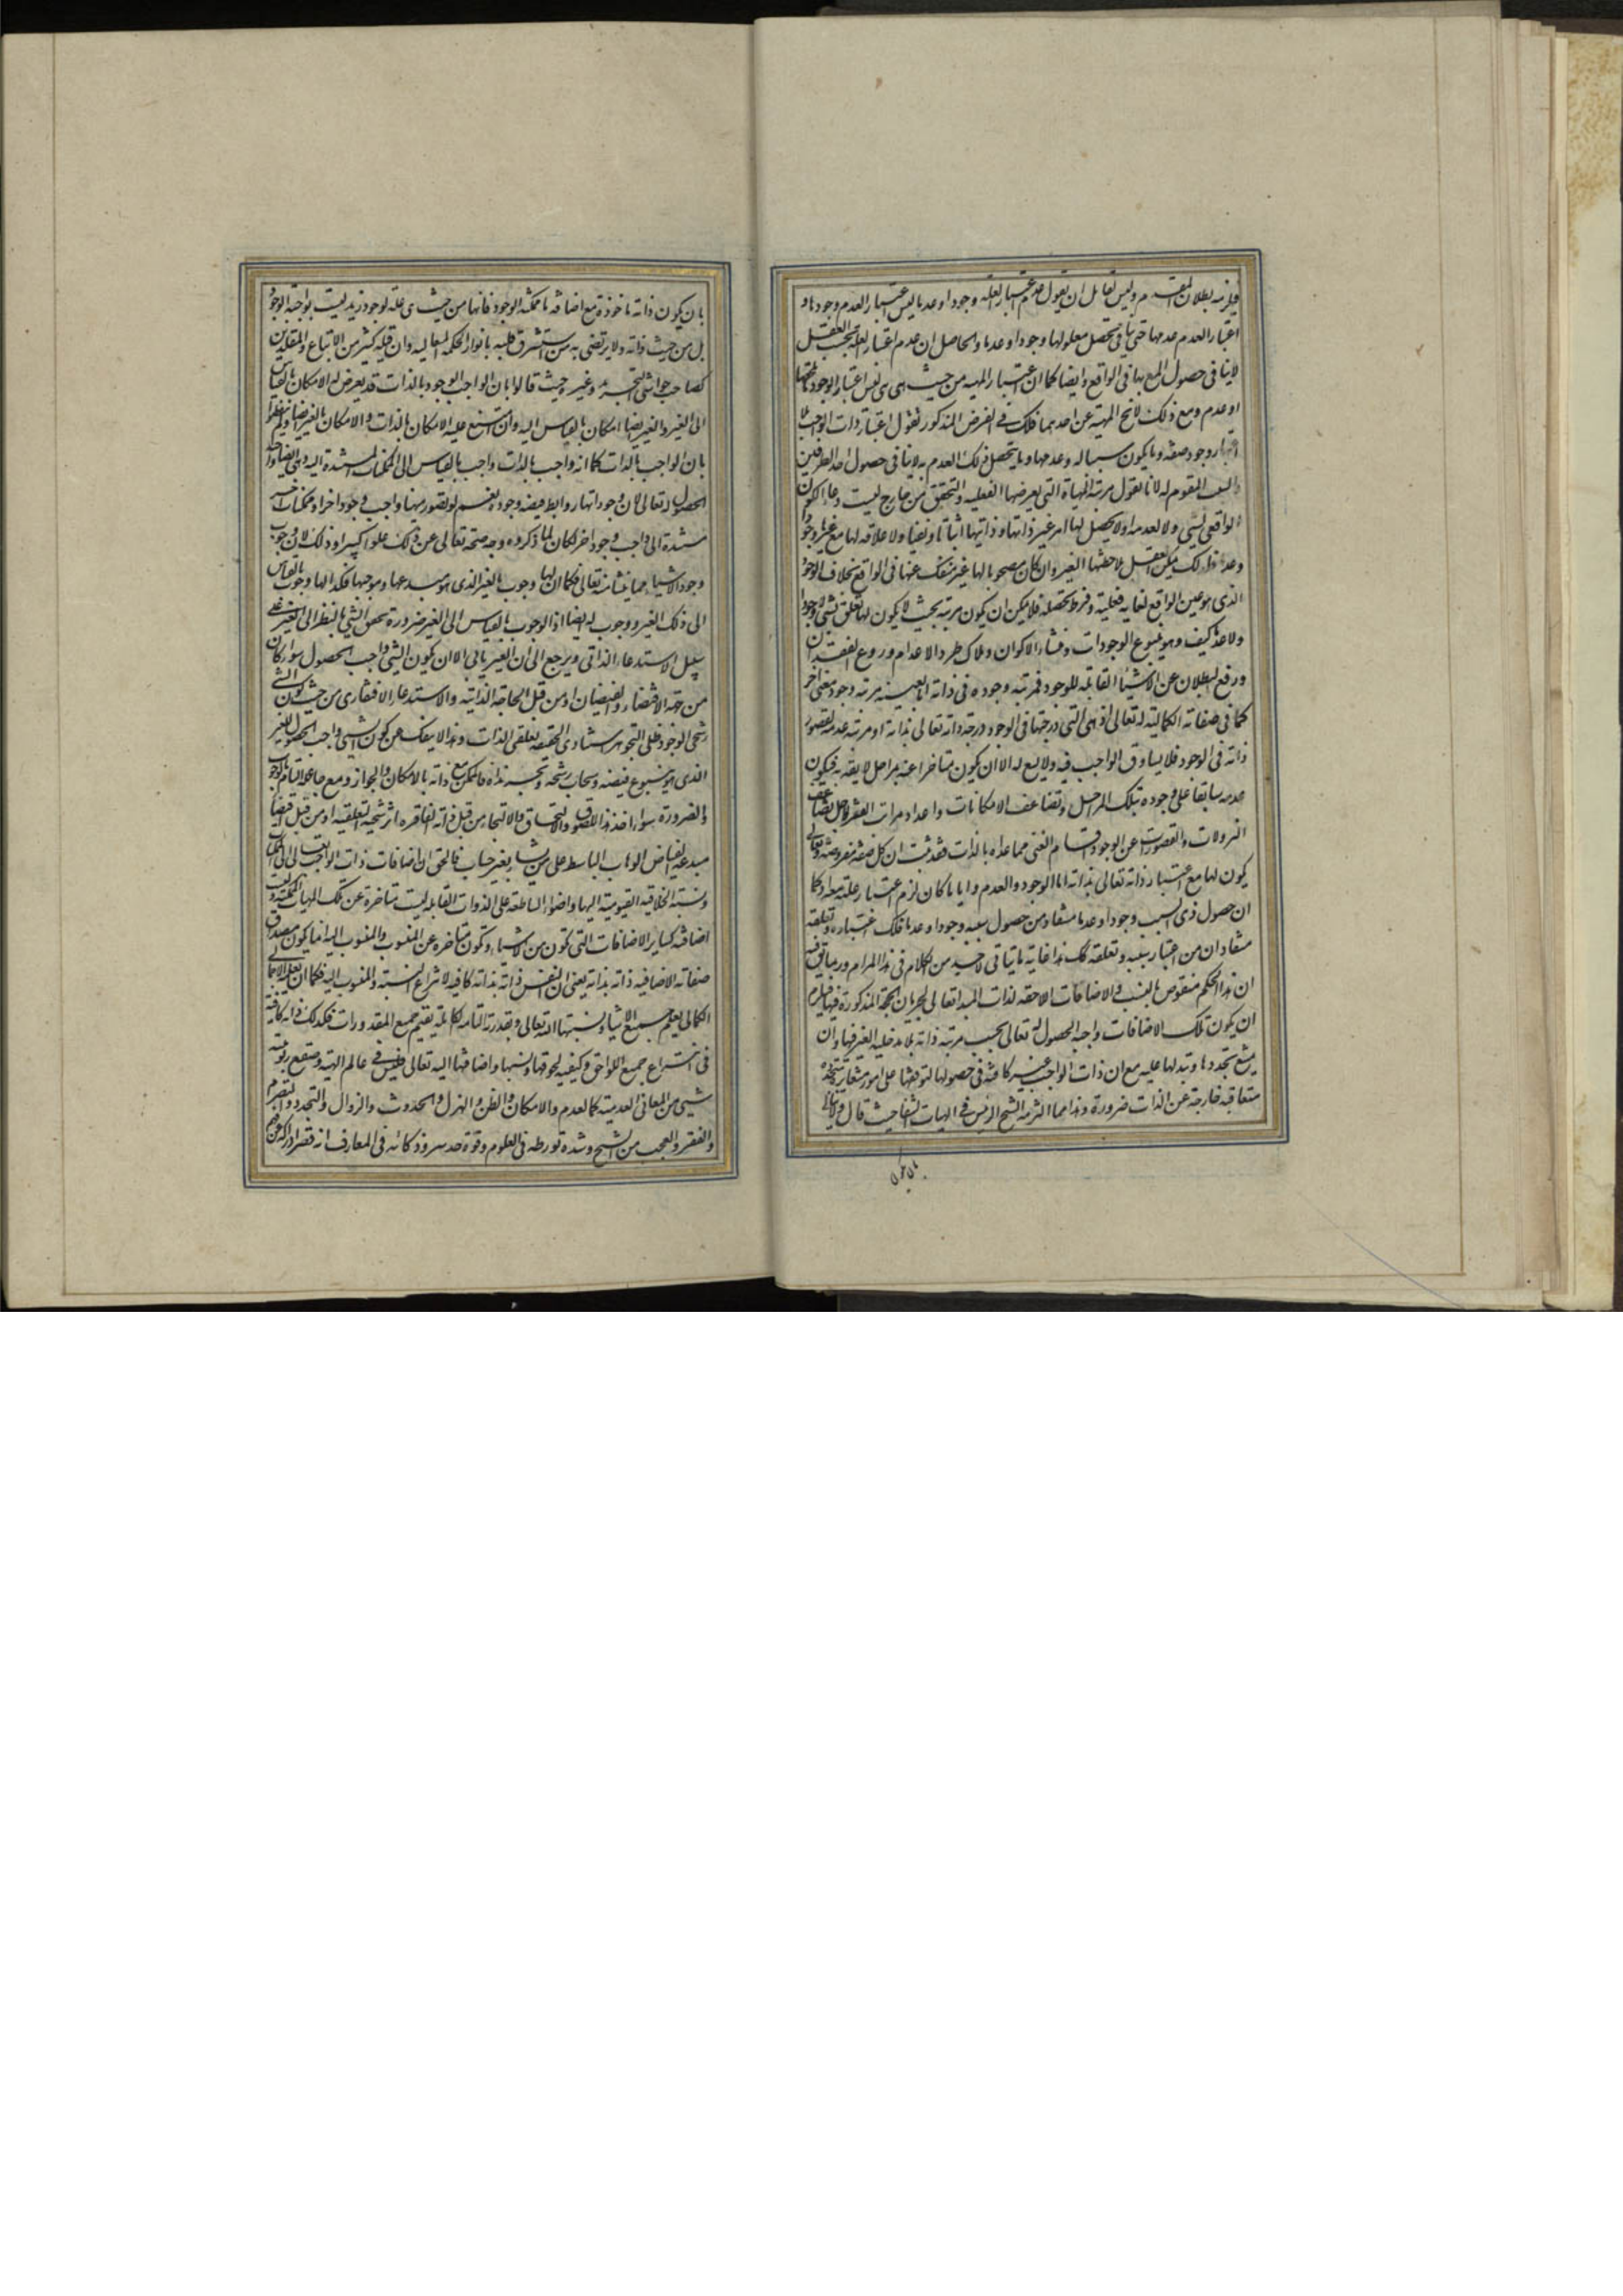 فيلزمه بطلان المقدم وليس لقائل ان يقول عدم اعتبار العلة وجودا وعدما ليس اعتبار العدم وجودها و
اعتبار العدم عدمها حتى ينافي تحصل معلولها وجودا وعدما والحاصل ان عدم اعتبار العلة بحسب العقل
لا ينافي حصول المع بها في الواقع وايضا كما ان اعتبار المهية من حيث هي هي ليس اعتبار الوجود ما معها
او عدم ومع ذلك لا يخ المهية عن احدهما فلك في الفرض المذكور نقول اعتبار ذات الواجب بلا
اعتبار وجود صفة وما يكون سببا له وعدمها وما يتحصل ذلك العدم به لا ينافي حصول احد الطرفين
والسبب المقوم له لانا نقول مرتبة المهية التي يعرضها الفعلية والتحقق من خارج ليست وعاء الكون
الواقعي لشيء ولا لعدمه اولا يحصل لها امر غير ذاتها وذاتيها اثباتا ونفيا ولا علاقة لها مع غيرها وجودا
وعدما فلذلك يمكن للعقل ملاحظتها الغير وان كان مصحوبا لها غير منفك عنها في الواقع بخلاف الوجود
الذي هو عين الواقع لغاية فعليته وفرط تحصله فلا يمكن ان يكون مرتبة بحيث لا يكون لها تعلق بشيء لا وجودا
ولا عدما كيف وهو ينبوع الوجودات ومنشاء الاكوان وملاك طرد الاعدام وروع الفقدان
ورفع البطلان عن الاشياء القابلة للوجود فمرتبة وجوده في ذاته اما بعينه مرتبة وجود معنى اخر
كما في صفاته الكمالية له تعالى اذ هي التي درجتها في الوجود درجة ذاته تعالى بذاته او مرتبة عدمه لقصور
ذاته في الوجود فلا يساوق الواجب فيه ولا يسع له الا ان يكون متاخرا عنه بمراحل لايقة به فيكون
عدمه سابقا على وجوده بتلك المراحل وتضاعف الامكانات واعداد مرات الفقر لاجل تضاعف
النزولات والقصورات عن الوجود القسام الغني مما عداه بالذات فقد ثبت ان كل صفة مفروضة له تعالى
يكون لها مع اعتبار ذاته تعالى بذاته اما الوجود والعدم وايا ما كان لزم اعتبار علته معه اذ كما
ان حصول ذي السبب وجودا وعدما مستفاد من حصول سببه وجودا وعدما فلك اعتباره وتعلقه
مستفادان من اعتبار سببه وتعلقه كك هذا غاية ما يتاتى لاحد من الكلام في هذا المرام وربما يق فيه
ان هذا الحكم منقوض بالنسب والاضافات اللاحقة لذات المبدا تعالى لجريان الحجة المذكورة فيها فيلزم
ان يكون تلك الاضافات واجبة الحصول له تعالى بحسب مرتبة ذاته بلا مدخلية الغير فيها وان
يمتنع تجددها وتبدلها عليه مع ان ذات الواجب غير كافية في حصولها لتوقفها على امور متغايرة متجددة
متعاقبة خارجة عن الذات ضرورة وهذا مما التزمه الشيخ الرئيس في الهيات الشفا حيث قال ولا نبالي
بان يكون
بان يكون ذاته ماخوذة مع اضافة ما ممكنة الوجود فانها من حيث هي علة لوجود زيد ليست بواجبة الوجود
بل من حيث ذاته ولا يرتضى به من استشرق قلبه بانوار الحكمة المتعالية وان قبله كثير من الاتباع والمقلدين
كصاحب حواشي التجريد وغيره حيث قالوا بان الواجب الوجود بالذات قد يعرض له الامكان بالقياس
الى الغير وللغير ايضا امكان بالقياس اليه وان امتنع عليه الامكان بالذات والامكان بالغير ايضا ولم
بان الواجب بالذات كما انه واجب بالذات واجب بالقياس الى الممكنات المستندة اليه وهي ايضا واجبة
الحصول له تعالى لان وجوداتها روابط فيضه وجوده نعم لو تصور بينها واجب وجود اخر او ممكنات اخر
مستندة الى واجب وجود اخر لكان لما ذكروه وجه صحة تعالى عن ذلك علوا كبيرا وذلك لان وجوب
وجود الاشياء مما ينشا منه تعالى فكما ان لها وجوب بالغير الذي هو مبدعها وموجبها فكذا لها وجوب بالقياس
الى ذلك الغير ووجوب له ايضا اذ الوجوب بالقياس الى الغير ضرورة تحقق الشيء بالنظر الى الغير على
سبيل الاستدعاء الذاتي ويرجع الى ان الغير يابى الا ان يكون الشيء واجب الحصول سواء كان
من جهة الاقتضاء والفيضان او من قبل الحاجة الذاتية والاستدعاء الافتقاري من حيث كون الشيء
رشحي الوجود ظلي التجوهر استنادي الحقيقة تعلقي الذات وهذا لا ينفك عن كون الشيء واجب الحصول للغير
الذي هو ينبوع فيضه وسحاب رشحه وبحسبه هذاه فالممكن مع ذاته بالامكان والجواز ومع جاعله التام بالوجوب
والضرورة سواء اخذ هذا اللصوق والالتصاق والالتجاء من قبل ذاته الفاقرة اثر شحية التعلقية او من قبل فيضان
مبدعه الفياض الوهاب الباسط على من يشاء بغير حساب فالحق ان اضافات ذات الواجب تعالى الى الممكنات
ونسبة الخلاقية القيومية اليها واضواء الساطعة على الذوات القابلة ليست متاخرة عن تلك المهيات الممكنة وليست
اضافته كساير الاضافات التي تكون من الاشياء وتكون متاخرة عن المنسوب والمنسوب اليه انما يكون مصدق
صفاته الاضافية ذاته بذاته يعني ان النفس ذاته بذاته كافية لانتزاع النسبة والمنسوب اليه فكما ان بعلمه الاجمالي
الكمالي يعلم جميع الاشياء ونسبتها اليه تعالى وبقدرته التامة الكاملة يقيم جميع المقدورات فكذلك ذاته كافية
في انتزاع جميع اللواحق وكيفية لحوقها ونسبها واضافتها اليه تعالى فليس في عالم الهيته وصقع ربوبيته
شيء من المعاني العدمية كالعدم والامكان والظن والهزل والحدوث والزوال والتجدد والتصرم
والفقر والعجب من الشيخ وشدة تورطه في العلوم وقوة حدسه وذكائه في المعارف انه قصر ادراكه عن فهم